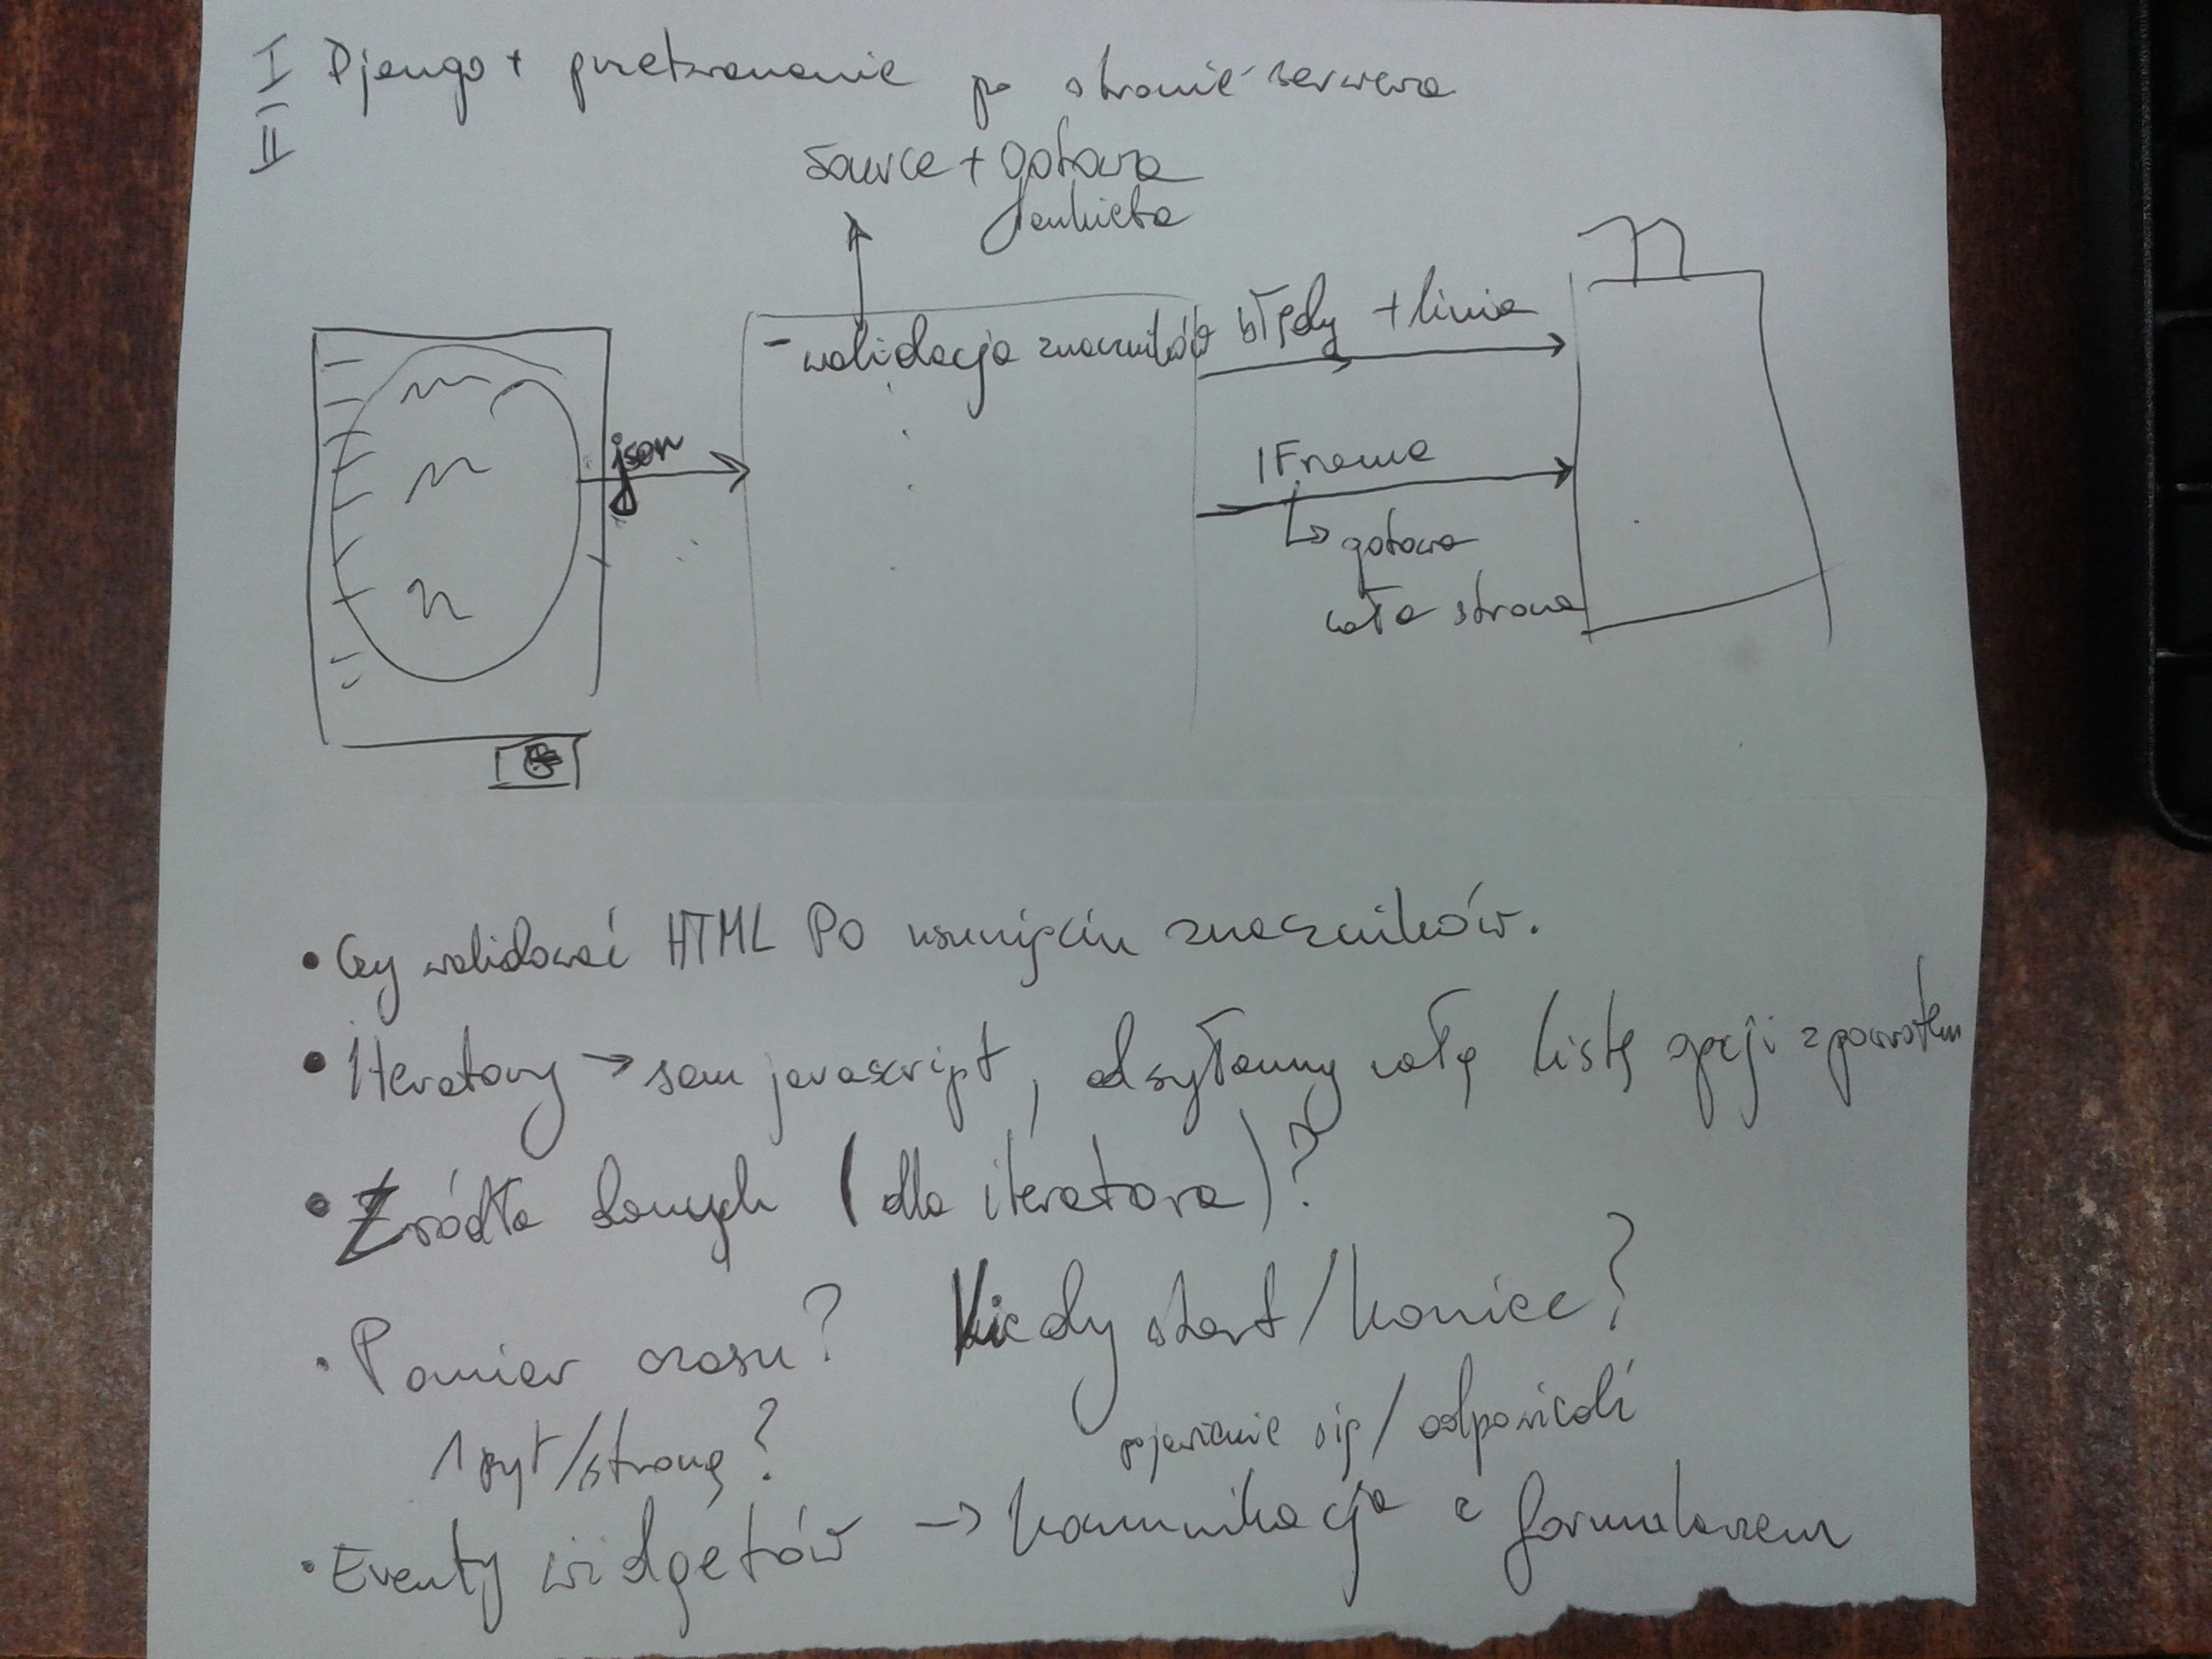 I Django + przetwarzanie po stronie serwera
II
source + gotowa
json
- walidacja znaczników
błędy + linia
IFrame
↳ gotowa
cała strona
• Czy walidować HTML PO usunięciu znaczników.
• iteratory → sam javascript, odsyłamy całą listę opcji z powrotem
• Źródła danych (dla iteratora)
• Pomiar czasu? Kiedy start/koniec?
1 pyt/stronę? pojawienie się/odpowiedź
• Eventy widgetów → komunikacja z formularzem